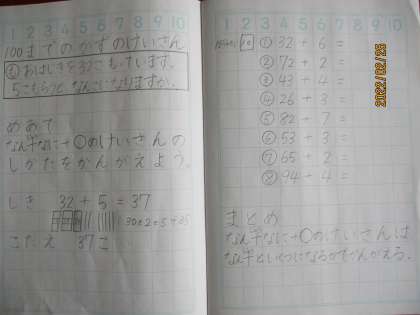 1 2 3 4 5 6 7 8 9 10
100までのかずのけいさん
おはじきを32こもっています。
5こもらうと なんこになりますか。
めあて
なん十なに+○のけいさんの
しかたをかんがえよう。
しき 32 + 5 = 37
こたえ 37こ
1 2 3 4 5 6 7 8 9 10
① 32 + 6 =
② 72 + 2 =
③ 43 + 4 =
④ 26 + 3 =
⑤ 82 + 7 =
⑥ 53 + 3 =
⑦ 65 + 2 =
⑧ 94 + 4 =
まとめ
なん十なに+○のけいさんは
なん十といくつになるかでかんがえる。
2022/02/25